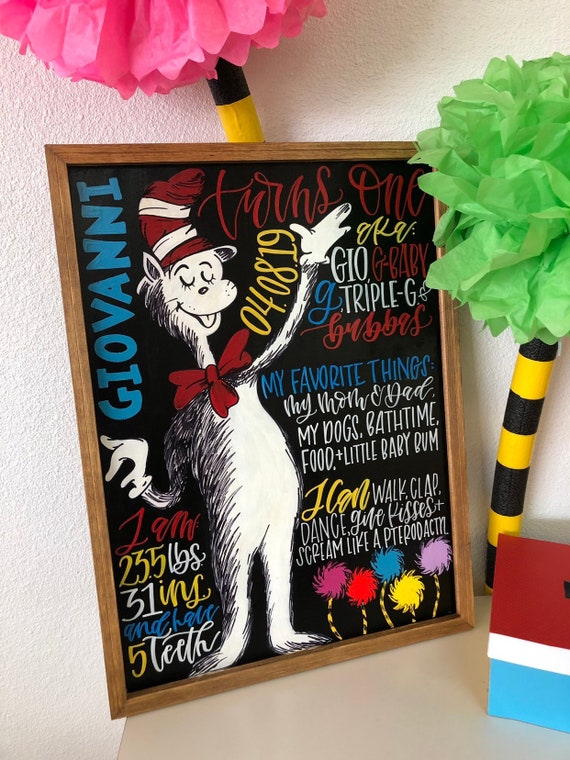 GIOVANNI
turns one
04.08.19
aka:
GIO, G-BABY
g TRIPLE-G &
bubbas
MY FAVORITE THINGS:
my mom & Dad,
MY DOGS, BATHTIME,
FOOD, + LITTLE BABY BUM
I can WALK, CLAP,
DANCE, give kisses +
SCREAM LIKE A PTERODACTYL
I am:
23.5 lbs
31 ins
and have
5 teeth